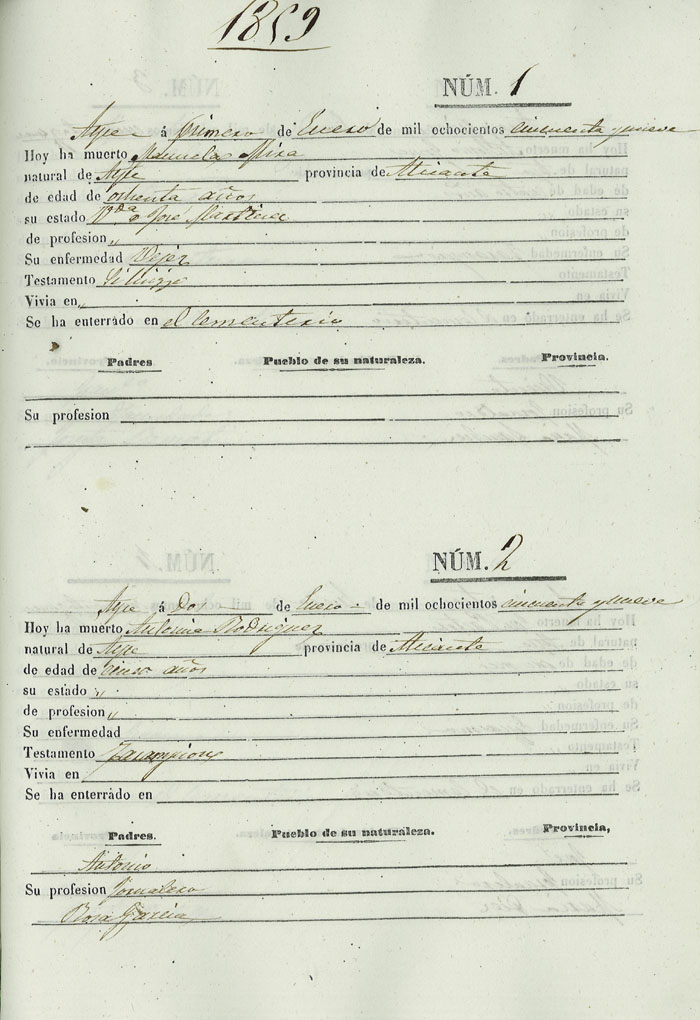 1859
NÚM. 1
Aspe á Primero de Enero de mil ochocientos cincuenta y nueve
Hoy ha muerto Manuela Mira
natural de Aspe provincia de Alicante
de edad de ochenta años
su estado Vda. de José Martinez
de profesion „
Su enfermedad Vejez
Testamento
Vivia en „
Se ha enterrado en el Cementerio
Padres Pueblo de su naturaleza. Provincia.
Su profesion
NÚM. 2
Aspe á Dos de Enero de mil ochocientos cincuenta y nueve
Hoy ha muerto Antonia Rodriguez
natural de Aspe provincia de Alicante
de edad de cinco años
su estado „
de profesion „
Su enfermedad
Testamento Sarampion
Vivia en
Se ha enterrado en
Padres. Pueblo de su naturaleza. Provincia,
Antonio
Su profesion Jornalero
Rosa Garcia